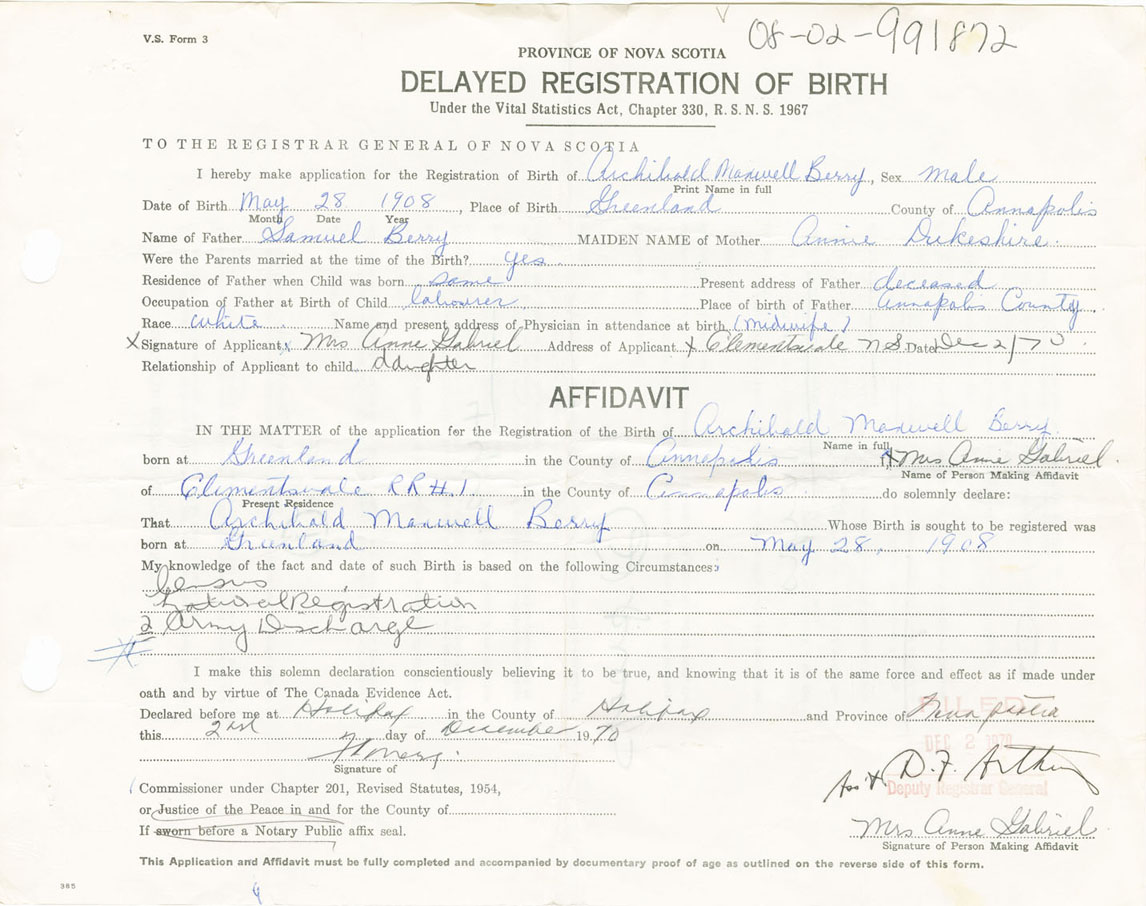 V.S. Form 3
08-02-991872
PROVINCE OF NOVA SCOTIA
DELAYED REGISTRATION OF BIRTH
Under the Vital Statistics Act, Chapter 330, R.S.N.S. 1967
TO THE REGISTRAR GENERAL OF NOVA SCOTIA
I hereby make application for the Registration of Birth of Archibald Maxwell Berry, Sex male
Print Name in full
Date of Birth May 28 1908, Place of Birth Greenland County of Annapolis
Month Date Year
Name of Father Samuel Berry MAIDEN NAME of Mother Annie Dukeshire
Were the Parents married at the time of the Birth? yes
Residence of Father when Child was born same Present address of Father deceased
Occupation of Father at Birth of Child labourer Place of birth of Father Annapolis County
Race White Name and present address of Physician in attendance at birth (midwife)
X Signature of Applicant x Mrs Anne Gabriel Address of Applicant x Clementsvale N.S. Date Dec 2/70
Relationship of Applicant to child daughter
AFFIDAVIT
IN THE MATTER of the application for the Registration of the Birth of Archibald Maxwell Berry
Name in full
born at Greenland in the County of Annapolis x Mrs Anne Gabriel
Name of Person Making Affidavit
of Clementsvale RR#1 in the County of Annapolis do solemnly declare:
Present Residence
That Archibald Maxwell Berry Whose Birth is sought to be registered was
born at Greenland on May 28, 1908
My knowledge of the fact and date of such Birth is based on the following Circumstances:
Census
National Registration
2 Army Discharge
I make this solemn declaration conscientiously believing it to be true, and knowing that it is of the same force and effect as if made under
oath and by virtue of The Canada Evidence Act.
Declared before me at Halifax in the County of Halifax and Province of Nova Scotia
FILED
this 2nd day of December 1970
DEC 2 1970
Signature of
Commissioner under Chapter 201, Revised Statutes, 1954,
Ass't D.F. Arthur
Deputy Registrar General
or Justice of the Peace in and for the County of
If sworn before a Notary Public affix seal.
Mrs Anne Gabriel
Signature of Person Making Affidavit
This Application and Affidavit must be fully completed and accompanied by documentary proof of age as outlined on the reverse side of this form.
385